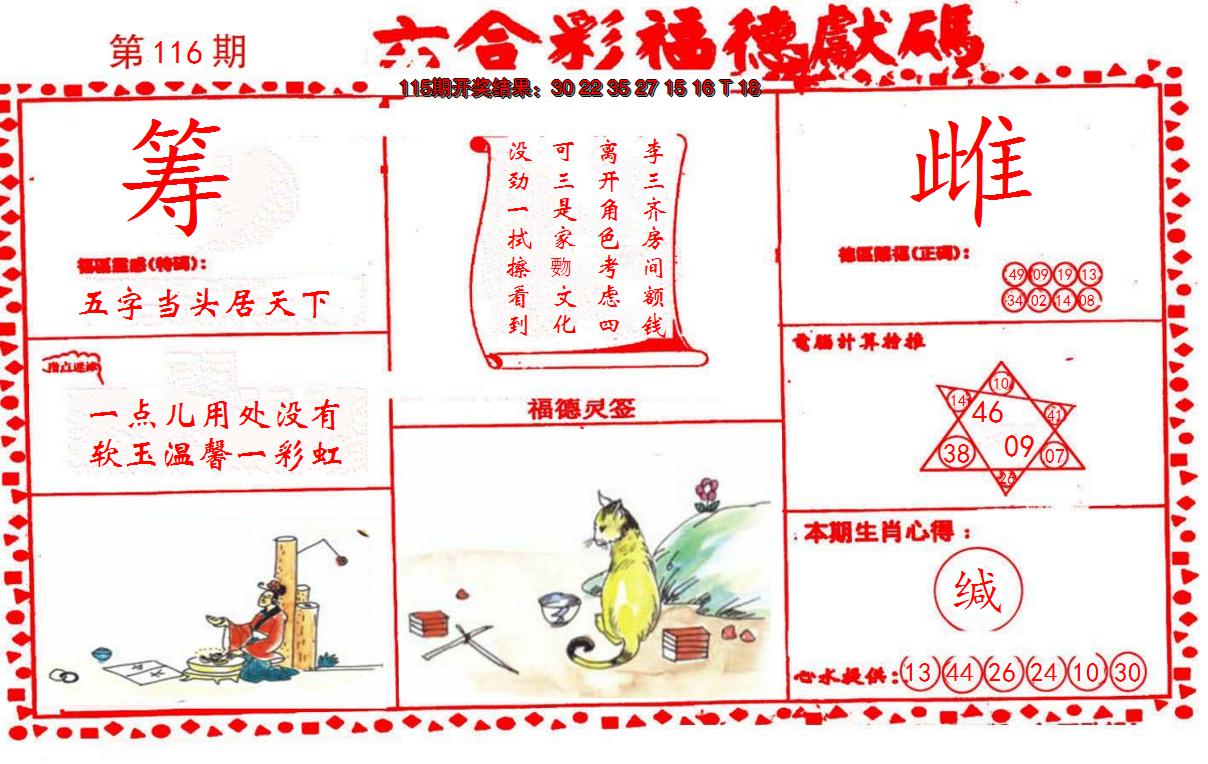 第116期
六合彩福德獻碼
115期开奖结果：30 22 35 27 15 16 T 18
筹
(特码)：
五字当头居天下
一点儿用处没有
软玉温馨一彩虹
李三齐房间额钱
离开角色考虑四
可三是家覅文化
没劲一拭擦看到
福德灵签
雌
(正码)：
49 09 19 13
34 02 14 08
電腦計算
10
14 46 41
38 09 07
26
本期生肖心得：
缄
心水提供：13 44 26 24 10 30